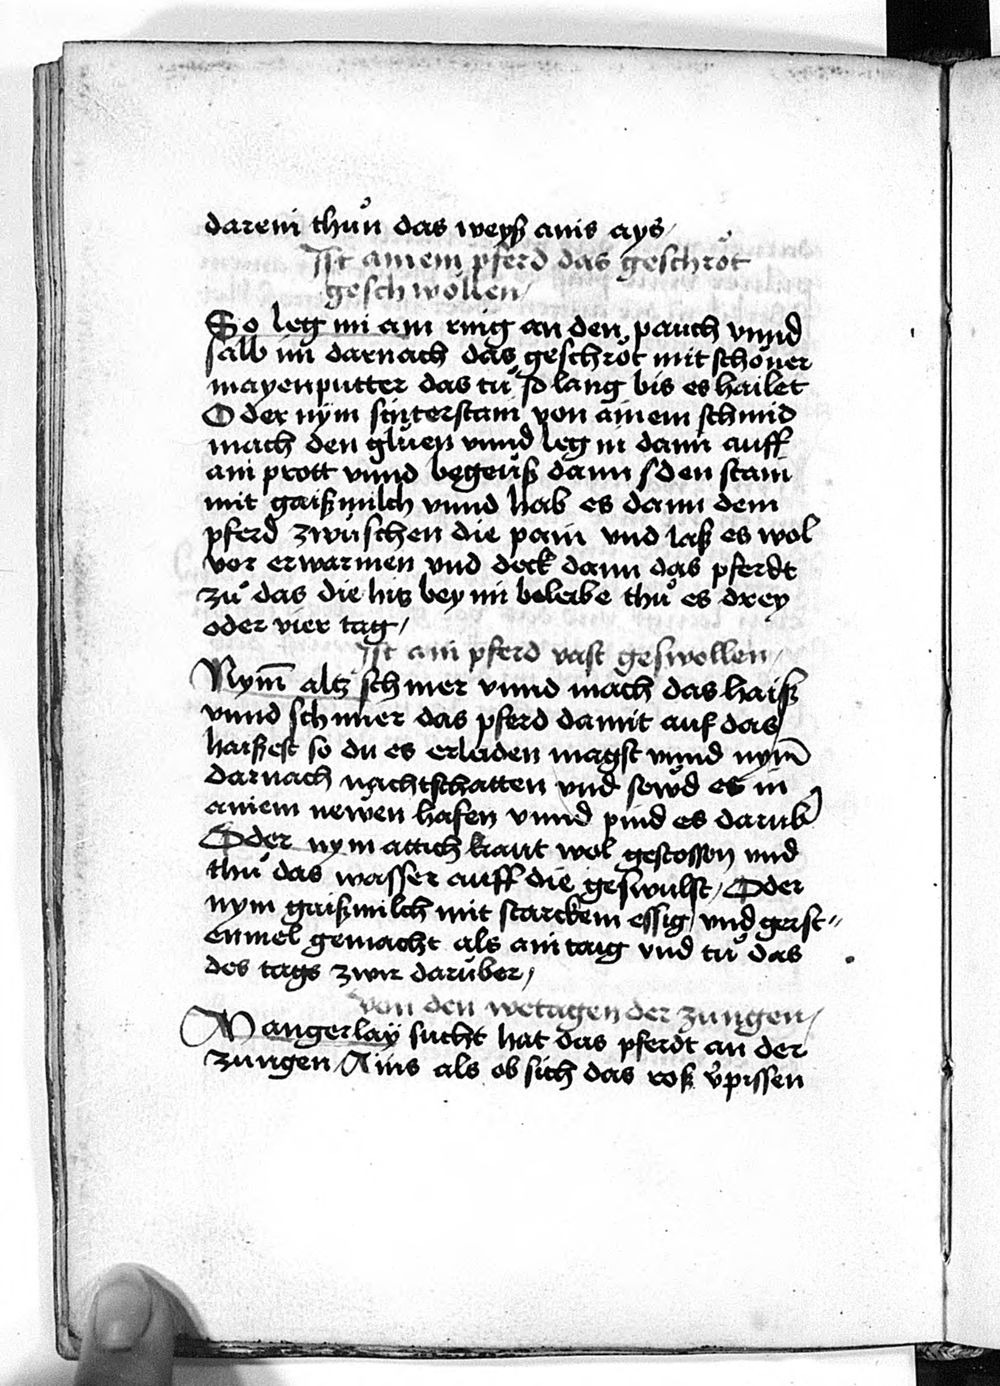 darein thůn das weyß ains ays /
Ist ainem pferd das geschröt
geschwollen /
So leg im ain ring an den pauch vnnd
salb im darnach das geschröt mit schöner
mayenputter das tů so lang bis es hailet
Oder nym sinterstain von ainem schmid
mach den glüen vnnd leg in dann auff
ain prott vnnd begeuß dann den stain
mit gaißmilch vnnd hab es dann dem
pferd zwüschen die pain vnd laß es wol
vor erwarmen vnd deck dann das pferdt
zů das die hitz bey im beleibe thů es drey
oder vier tag /
Ist ain pferd vast geswollen /
Nym̄ altz schmer vnnd mach das haiß
vnnd schmier das pferd damit auf das
haißest so du es erleiden magst vnnd nym̄
darnach nachtschatten vnd sewd es in
ainem newen hafen vnnd pind es darub
Oder nym attich kraut wol gestossen vnd
thů das wasser auff die geswulst / Oder
nym gaißmilch mit starckem essig vnd gerst=
enmel gemacht als ain taig vnd tů das
des tags zwir darüber /
Von den wetagen der zungen /
Mangerlaÿ sucht hat das pferdt an der
zungen / Ains als ob sich das roß v̓pissen